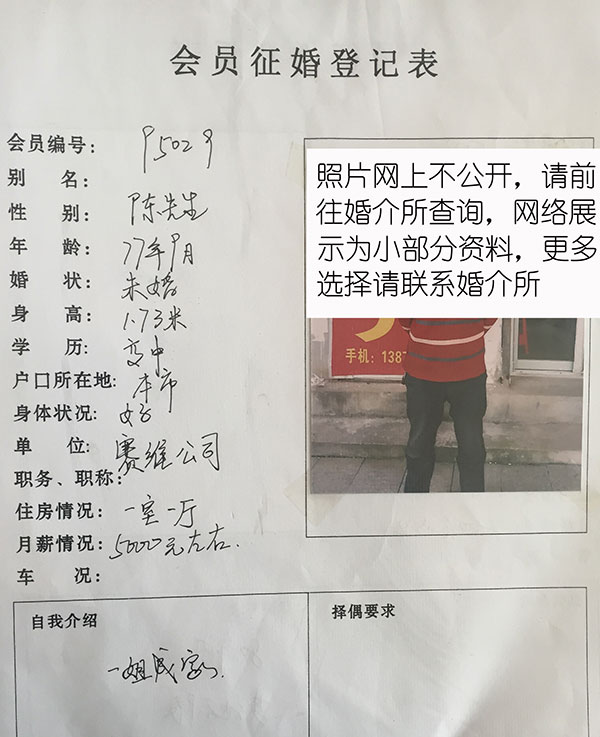 会员征婚登记表
会员编号: P5029
别 名:
性 别: 陈先生
年 龄: 77年9月
婚 状: 未婚
身 高: 1.73米
学 历: 高中
户口所在地: 本市
身体状况: 好
单 位: 赛维公司
职务、职称:
住房情况: 一室一厅
月薪情况: 5000元左右.
车 况:
照片网上不公开，请前
往婚介所查询，网络展
示为小部分资料，更多
选择请联系婚介所
手机: 138
自我介绍
一姐成家
择偶要求